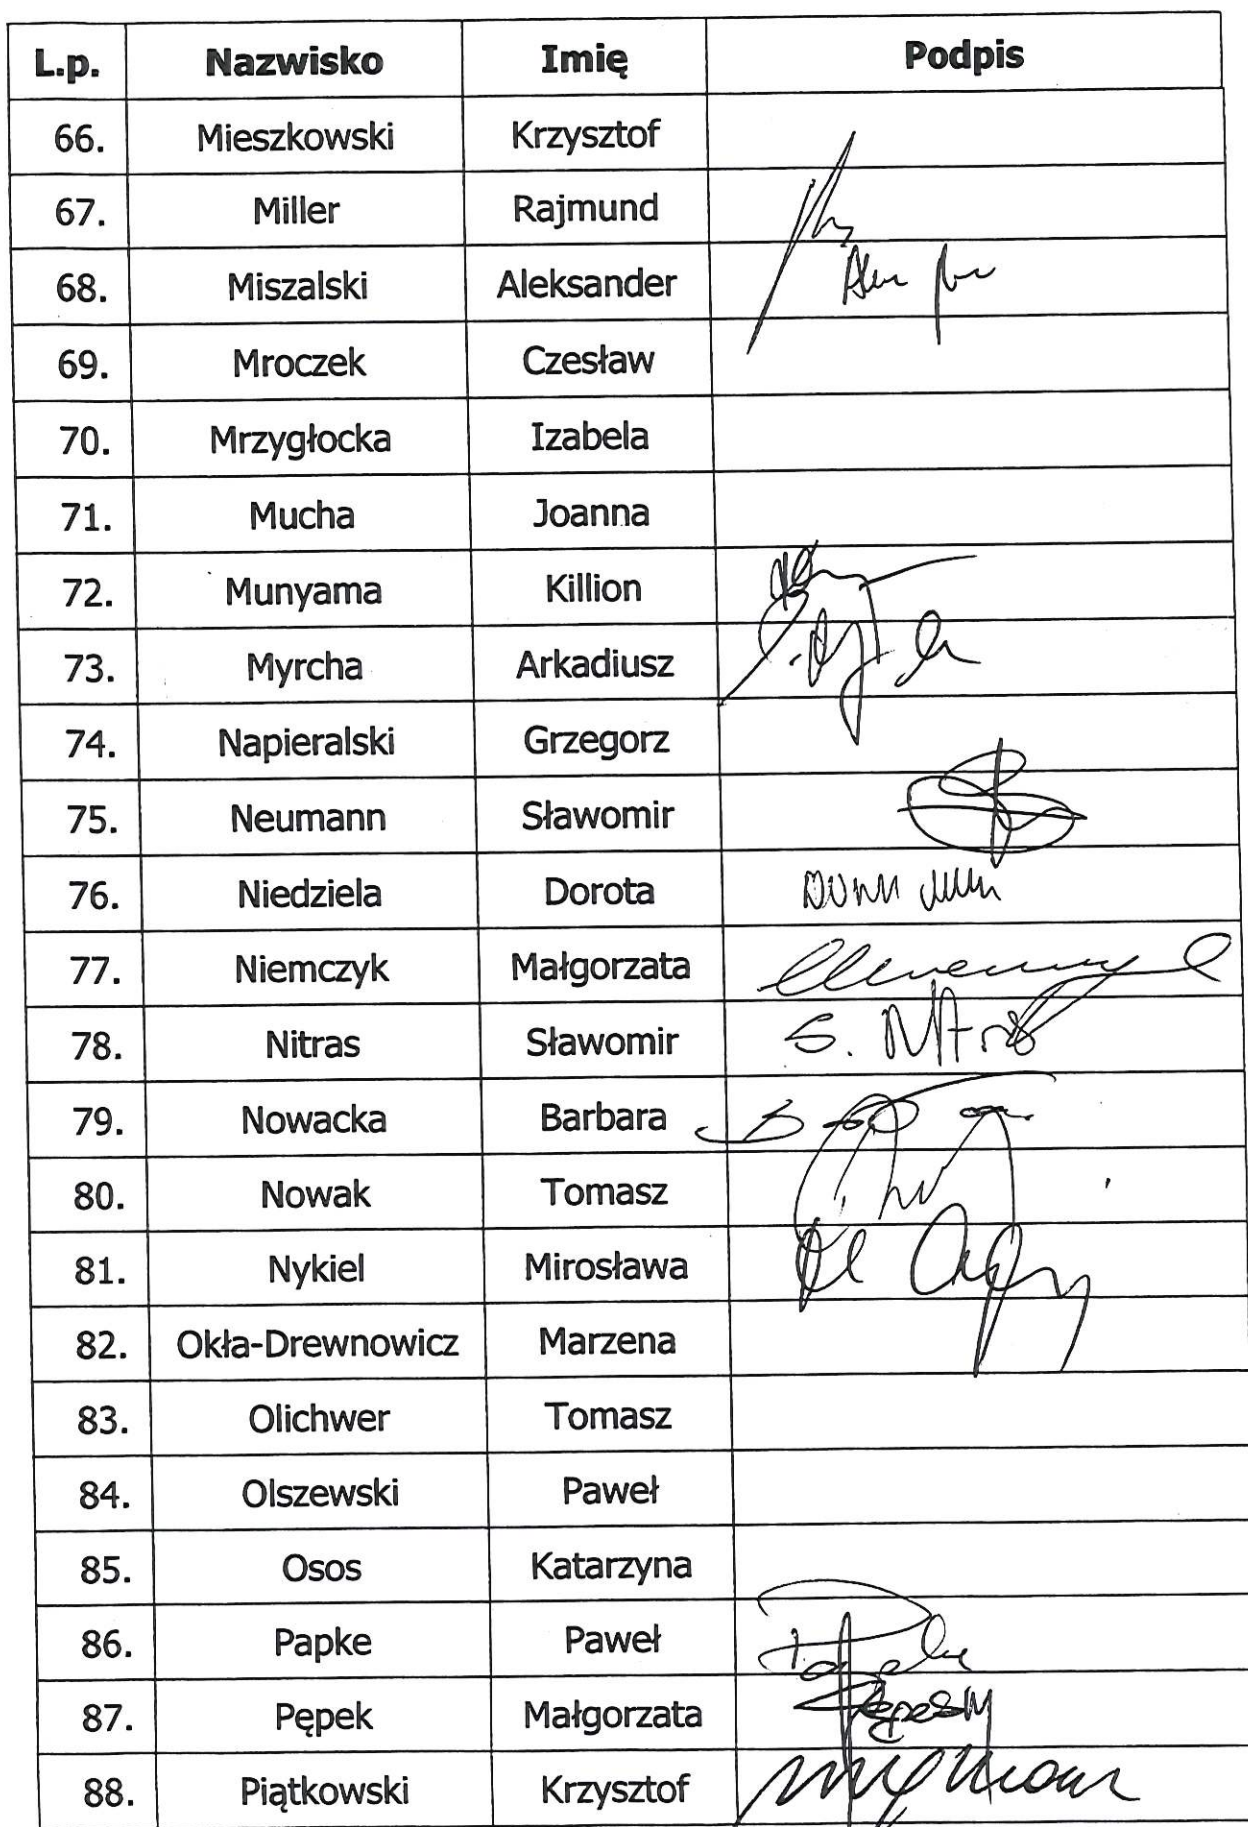 L.p. Nazwisko Imię Podpis
66. Mieszkowski Krzysztof
67. Miller Rajmund
68. Miszalski Aleksander
69. Mroczek Czesław
70. Mrzygłocka Izabela
71. Mucha Joanna
72. Munyama Killion
73. Myrcha Arkadiusz
74. Napieralski Grzegorz
75. Neumann Sławomir
76. Niedziela Dorota
77. Niemczyk Małgorzata
78. Nitras Sławomir S. Nitras
79. Nowacka Barbara
80. Nowak Tomasz
81. Nykiel Mirosława
82. Okła-Drewnowicz Marzena
83. Olichwer Tomasz
84. Olszewski Paweł
85. Osos Katarzyna
86. Papke Paweł
87. Pępek Małgorzata
88. Piątkowski Krzysztof